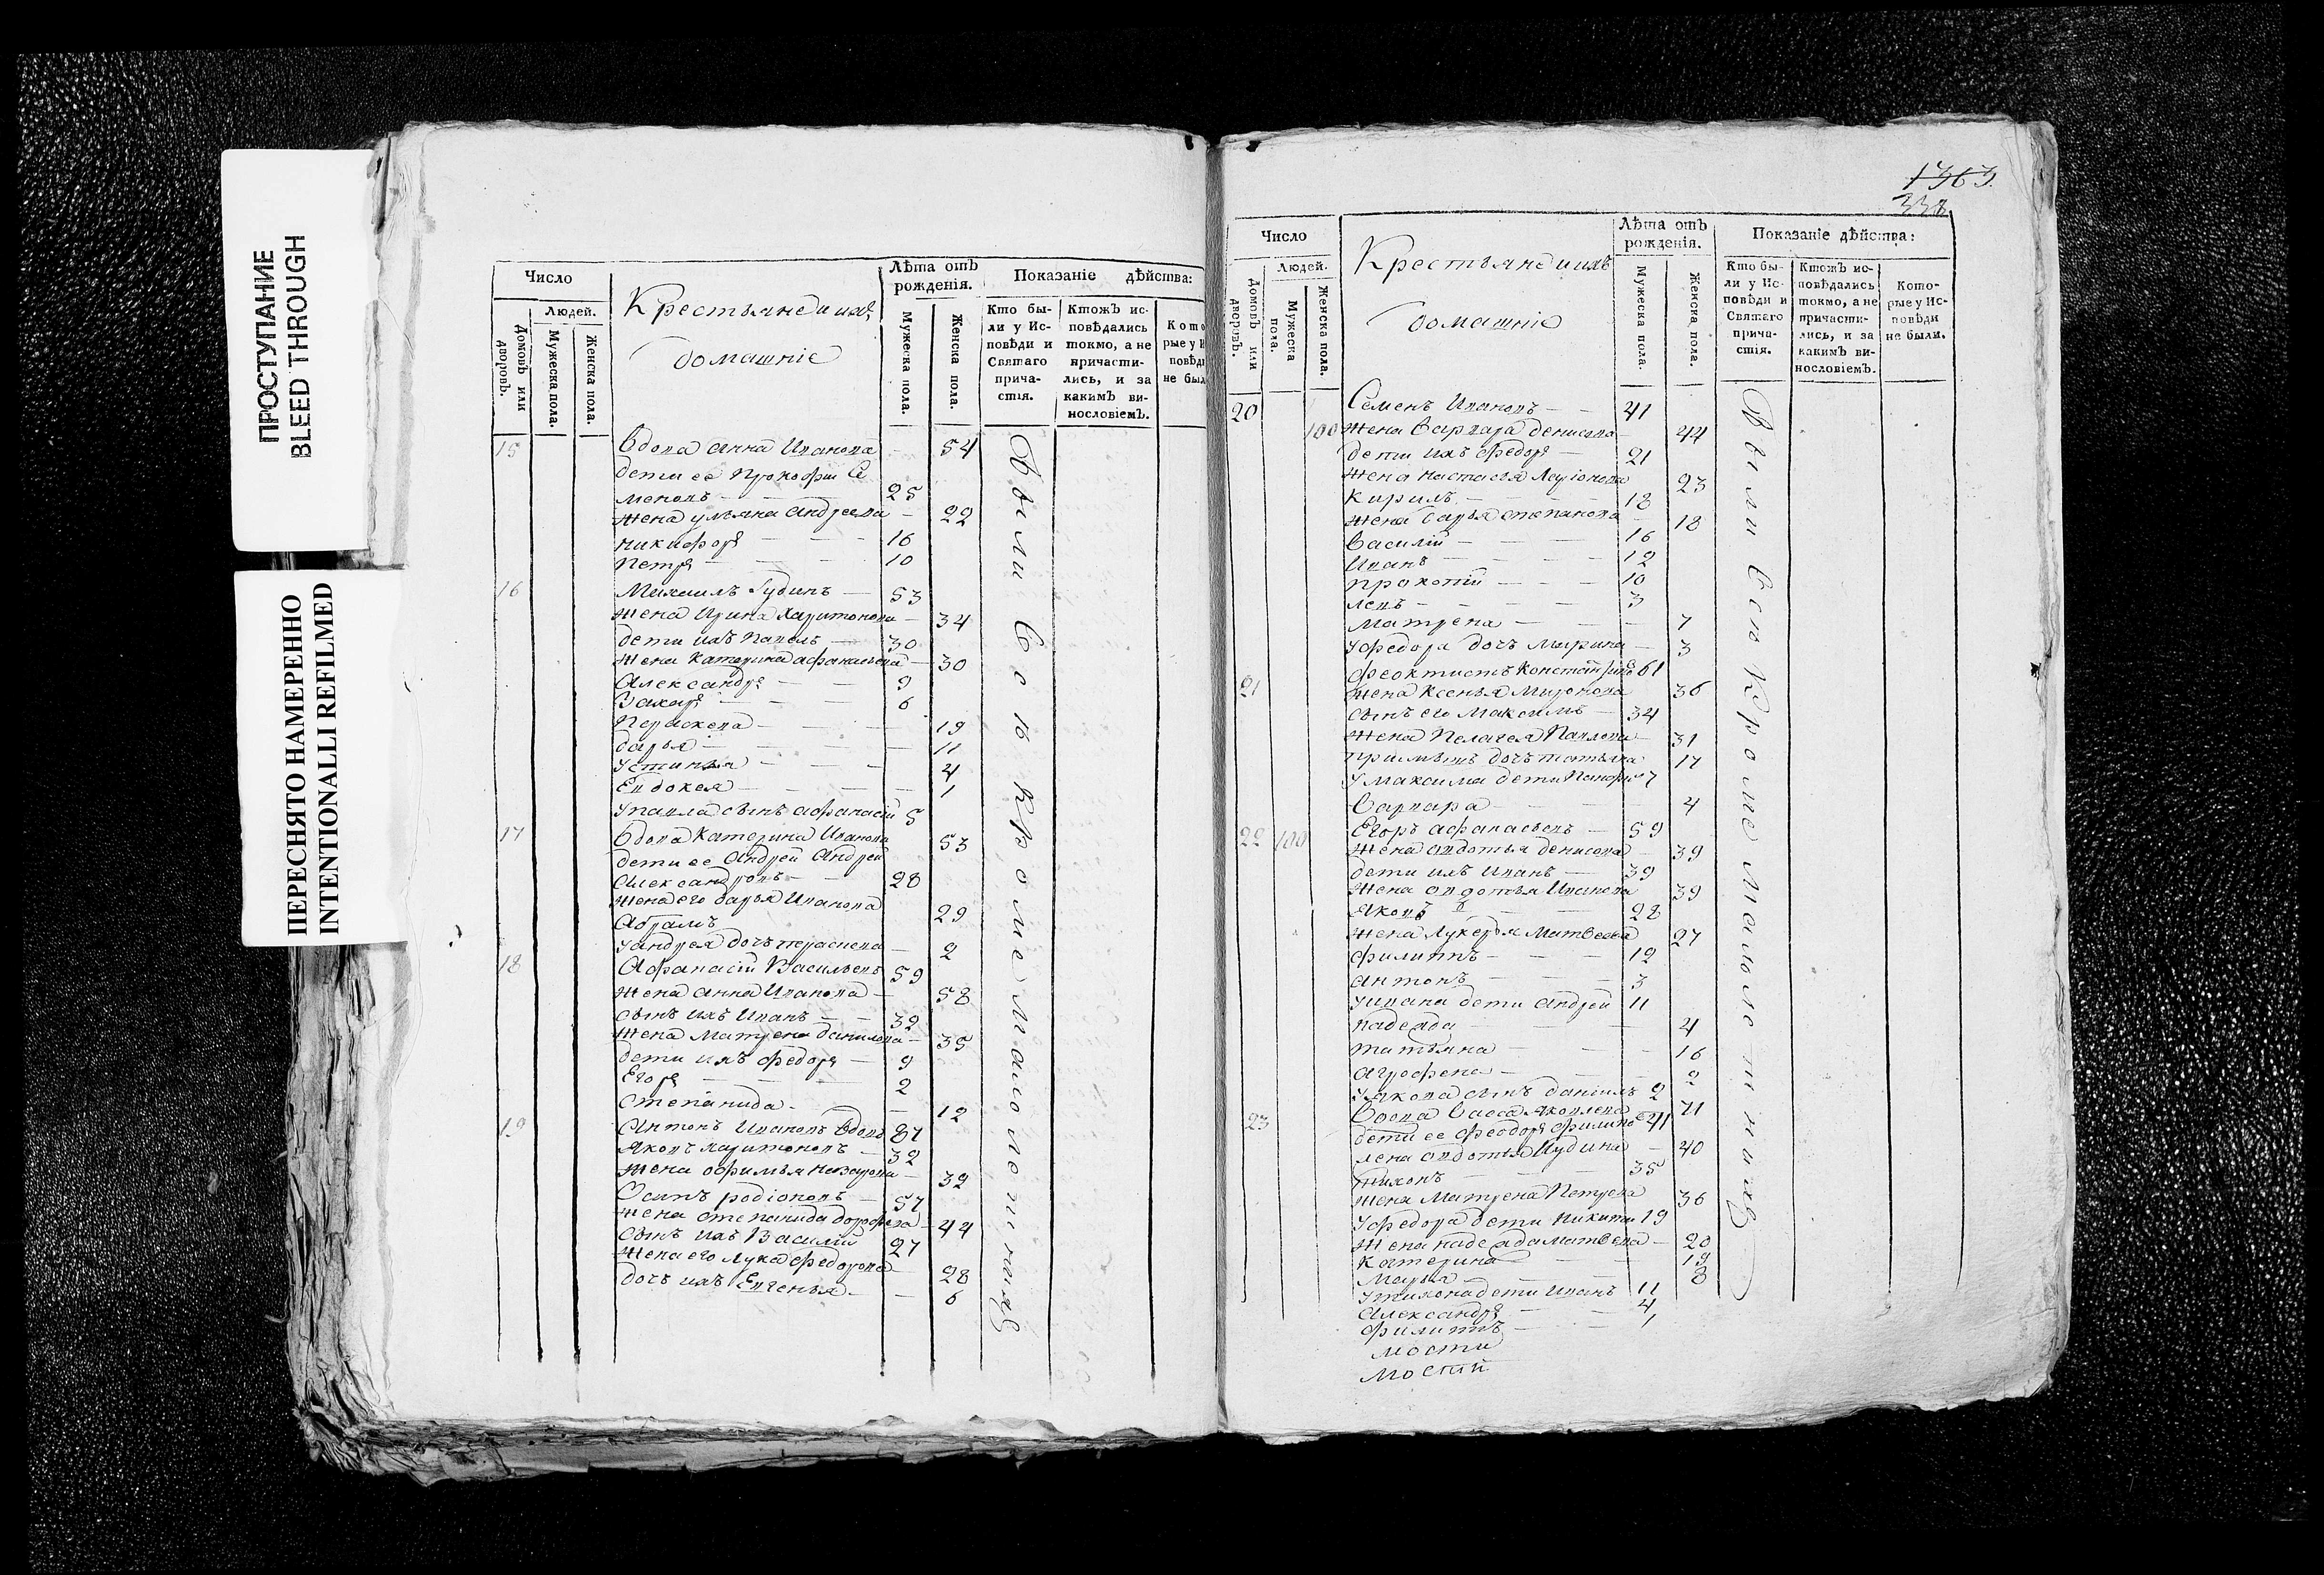 ПРОСТУПАНИЕ
BLEED THROUGH
ПЕРЕСНЯТО НАМЕРЕННО
INTENTIONALLI REFILMED
Число
Людей.
Домовъ или дворовъ.
Мужеска пола.
Женска пола.
Крестьяне и ихъ
домашніе
Лѣта отъ рожденія.
Мужеска пола.
Женска пола.
Показаніе дѣйства:
Кто были у Исповѣди и Святаго причастія.
Ктожъ исповѣдались токмо, а не причастились, и за какимъ винословіемъ.
Кото
рые у И
повѣди
не был
15 Вдова Анна Иванова 54
дети ее Прокофи Се
меновъ 25
жена ульяна Андреева 22
никифоръ 16
Петръ 10
16 Михаилъ Гудинъ 53
жена Ирина Харитонова 34
дети ихъ Павелъ 30
жена Катерина афанасьева 30
Александръ 9
Захаръ 6
Параскева 19
дарья 11
Устинья 4
Евдокея 1
Упавла сынъ афанасій 5
17 Вдова Катерина Иванова 53
дети ее Андрей Андрей
Александровъ 28
жена его дарья Иванова 29
Абрамъ
Уандрея дочь параскева 2
18 Афанасій Васильевъ 59
жена анна Иванова 58
сынъ ихъ Иванъ 32
жена Матрена данилова 35
дети ихъ федоръ 9
Егоръ 2
Степанида 12
19 Антонъ Ивановъ вдовъ 87
Яковъ харитоновъ 32
жена офимья назарова 32
Осипъ родіоновъ 57
жена степанида 44
сынъ ихъ Василій 27
жена его Лукея федорова 28
дочь ихъ Евгенья 6
Были Вси Кроме малолетнихъ
1363
338
Число
Людей.
Домовъ или дворовъ.
Мужеска пола.
Женска пола.
Крестьяне и ихъ
домашніе
Лѣта отъ рожденія.
Мужеска пола.
Женска пола.
Показаніе дѣйства:
Кто были у Исповѣди и Святаго причастія.
Ктожъ исповѣдались токмо, а не причастились, и за какимъ винословіемъ.
Которые у Исповѣди не были.
20 Семенъ Ивановъ 41
100 жена Варвара денисова 44
дети ихъ федоръ 21
жена настасья 23
Кирилъ 18
жена дарья степанова 18
Василій 16
Иванъ 12
прокопій 10
левъ 3
матрена 7
Уфедора дочь марина 3
21 феоктистъ 61
жена Ксенья Миронова 36
сынъ его Максимъ 34
жена Пелагея Павлова 31
дочь татьяна 17
У максима дети 7
Варвара 4
22 100 Егоръ афанасьевъ 59
жена авдотья денисова 39
дети ихъ Иванъ 39
жена авдотья Иванова 39
Яковъ 28
жена Лукерья Матвеева 27
филиппъ 12
антонъ 3
Уивана дети андрей 11
надежда 4
татьяна 16
Агрофена 2
Уякова сынъ даніилъ 2
23 Вдова Васса Яковлева 71
дети ее феодоръ 41
жена авдотья Иудина 40
тихонъ 35
жена Матрена Петрова 36
Уфедора дети никита 19
жена надежда матвеева 20
Катерина 19
Марья 8
Утихона дети Иванъ 11
Александръ 4
филиппъ 1
мости
мостй
Были Вси Кроме малолетнихъ